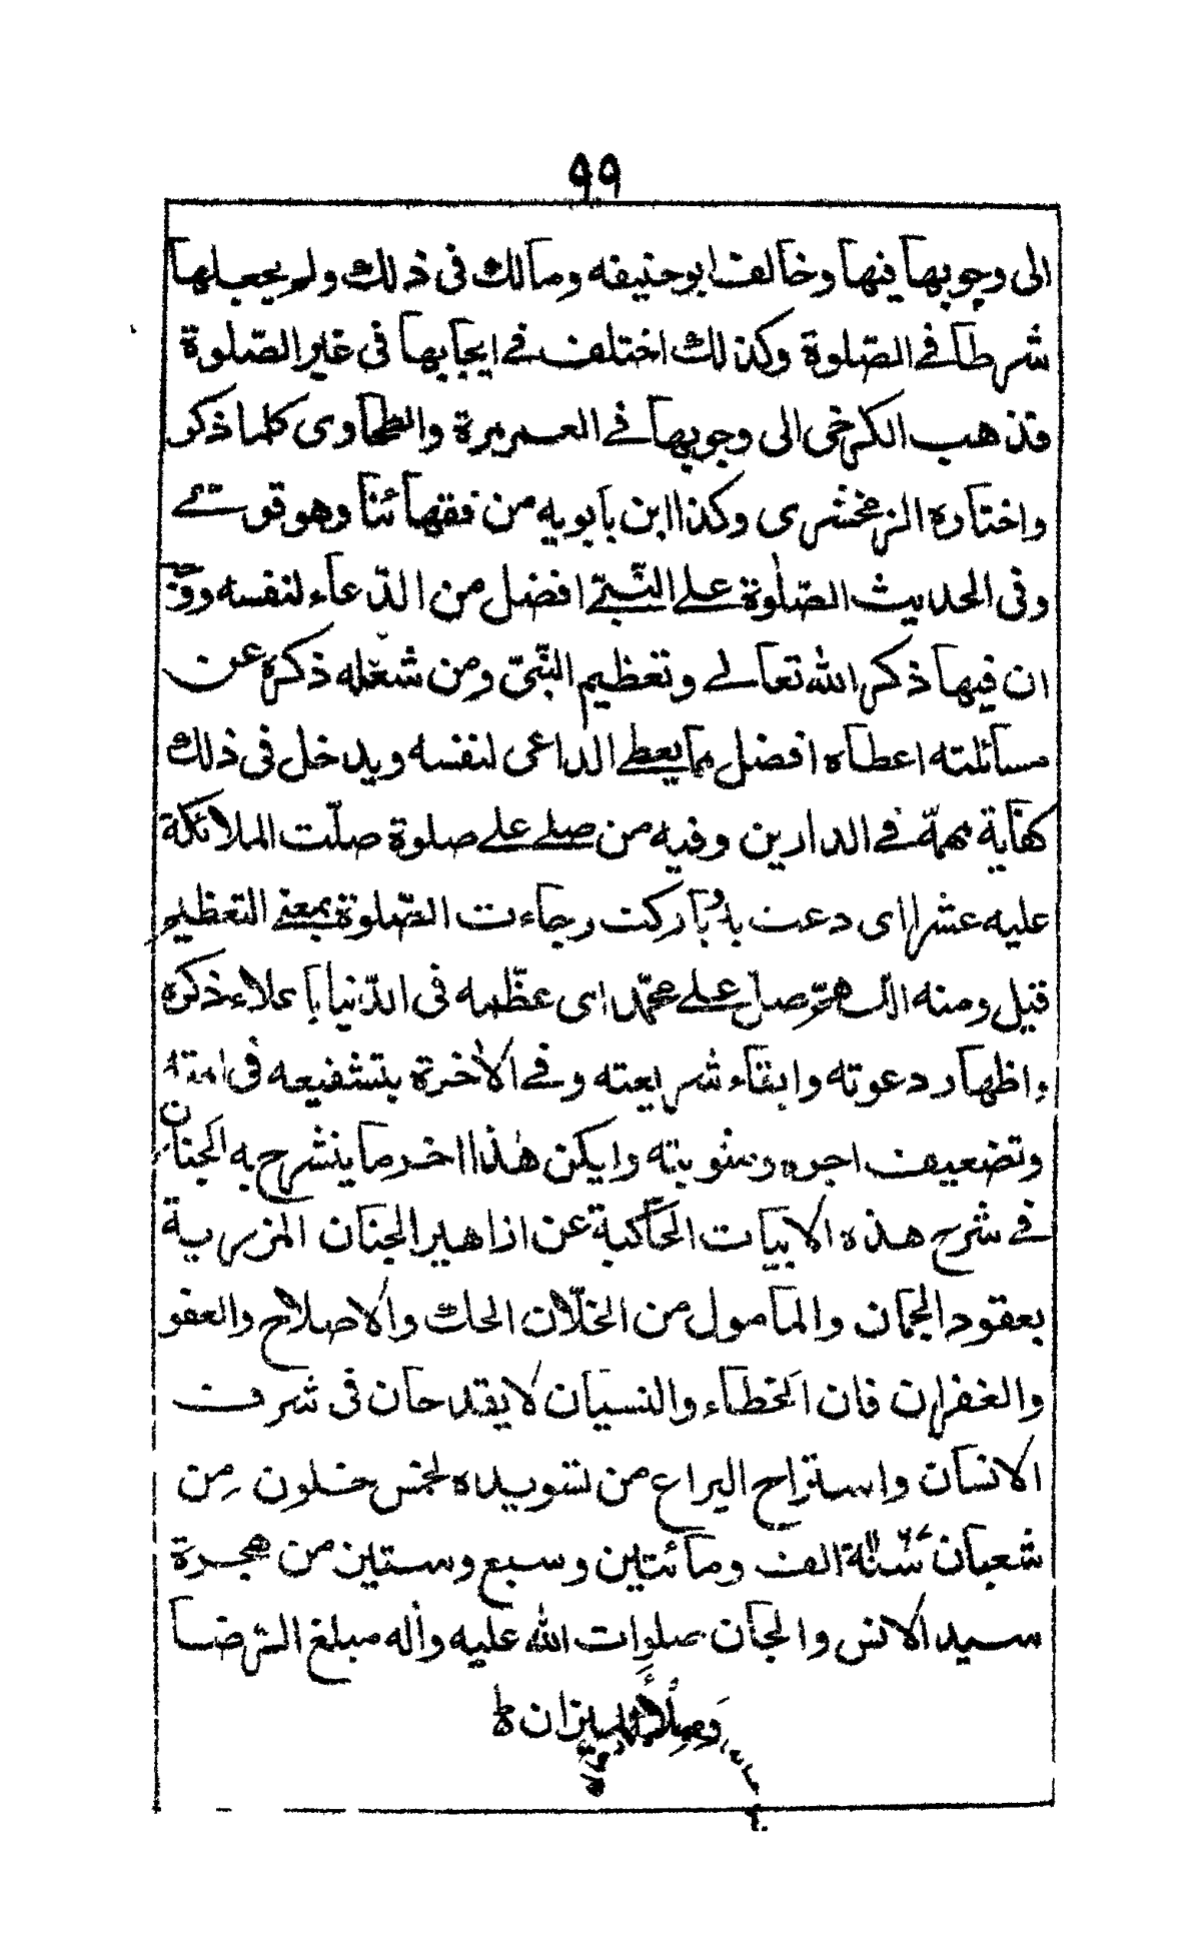 ٩٩
الى وجوبها فيها وخالف ابو حنيفه ومالك فى ذلك ولم يجعلها
شرطا فى الصّلوة وكذلك اختلف فى ايجابها فى غير الصّلوة
فذهب الكرخى الى وجوبها فى العمر مرة والطحاوى كلما ذكر
واختاره الزمخشرى وكذا ابن بابويه من فقهائنا وهو قوىّ
وفى الحديث الصّلٰوة على النّبىّ افضل من الدّعاء لنفسه
ان فيها ذكر الله تعالى وتعظيم النّبىّ ومن شغله ذكره عن
مسائلته اعطاه افضل مما يعطى الداعى لنفسه ويدخل فى ذلك
كفاية همّه فى الدارين وفيه من صلى على صلوة صلّت الملائكة
عليه عشرا اى دعت له وباركت وجاءت الصّلوة بمعنى التعظيم
قيل ومنه اللهمّ صلّ على محمّد اى عظّمه فى الدّنيا باعلاء ذكره
واظهار دعوته وابقاء شريعته وفى الاٰخرة بتشفيعه فى امته
وتضعيف اجره ومثوبته وليكن هٰذا اخر ما ينشرح به الجنان
فى شرح هذه الابيات الحاكية عن ازاهير الجنان المزرية
بعقود الجمان والمأمول من الخلّان الحك والاصلاح والعفو
والغفران فان الخطاء والنسيان لا يقدحان فى شرف
الانسان واستراح اليراع من تسويده لخمس خلون مِن
شعبان سنة الف ومائتين وسبع وستين من هجرة
سيد الانس والجان صلوات الله عليه واٰله مبلغ الرضا
وملأ الميزان ط